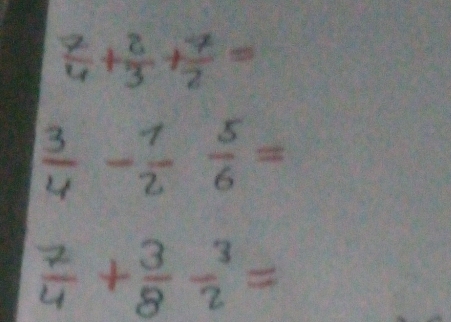 7/4 + 2/3 + 7/2 =
3/4 - 1/2 5/6 =
7/4 + 3/8 - 3/2 =